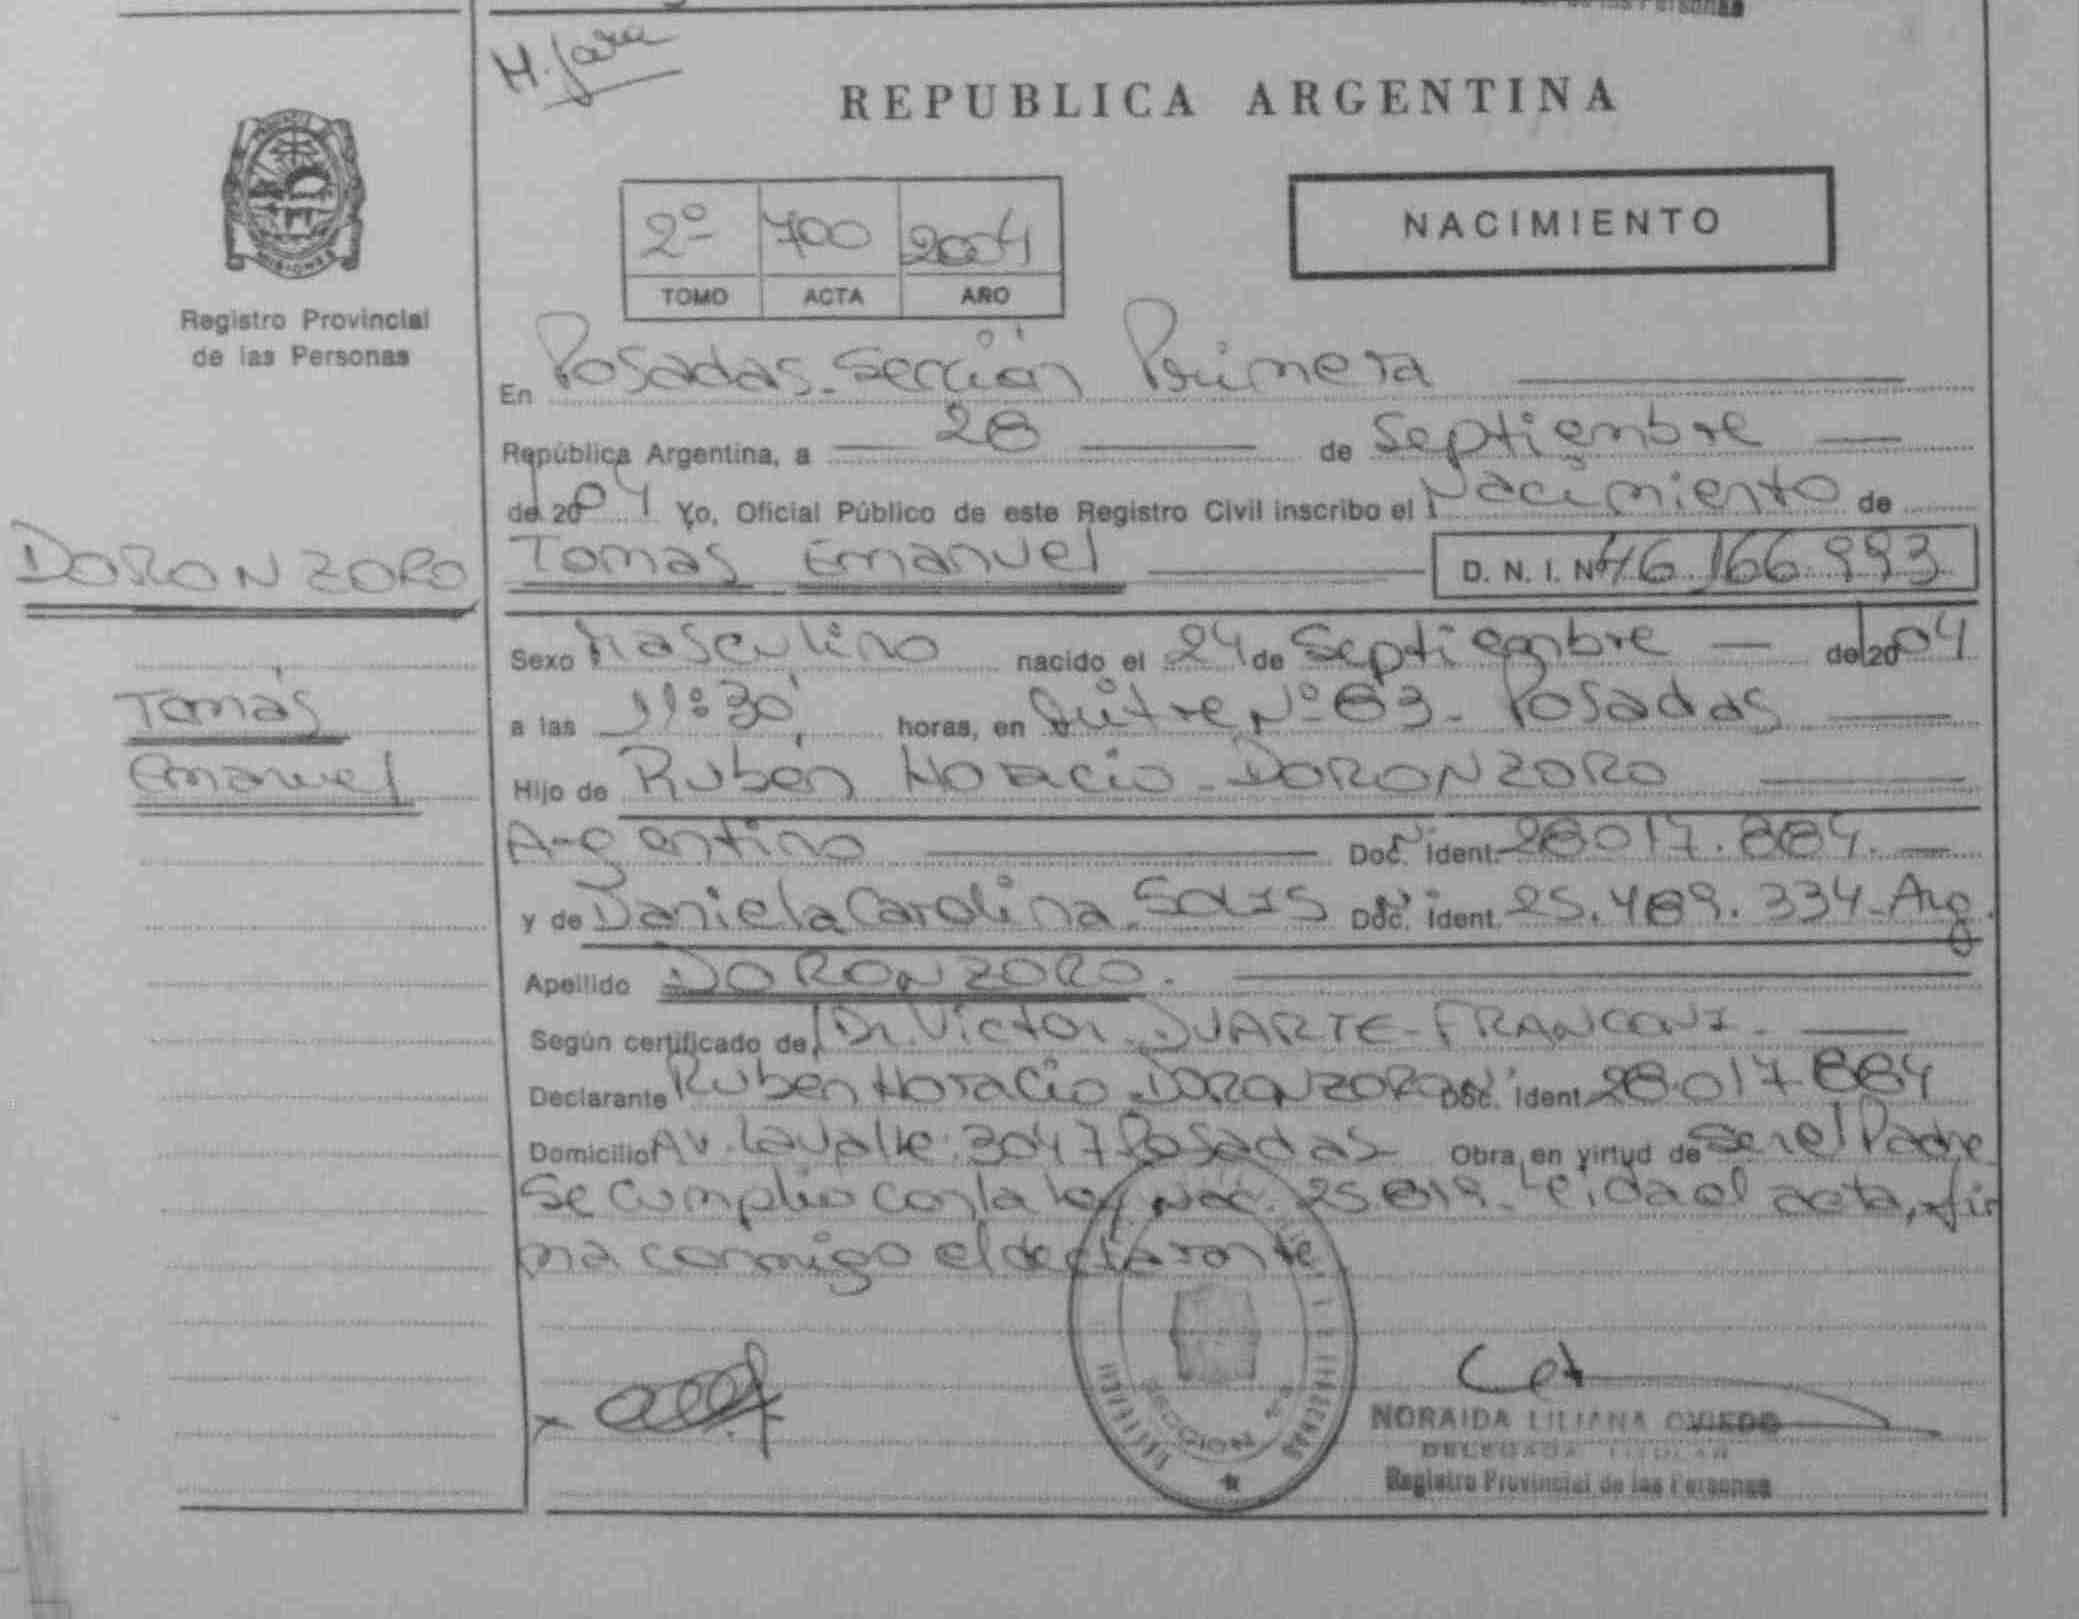 de las Personas
H. Jara
REPUBLICA ARGENTINA
MISIONES
2º 700 2004
TOMO ACTA AÑO
NACIMIENTO
Registro Provincial
de las Personas
En Posadas - Sección Primera
República Argentina, a 28 de Septiembre
de 2004 Yo, Oficial Público de este Registro Civil inscribo el Nacimiento de
DORONZORO
Tomás Emanuel D. N. I. Nº 46.166.993
Sexo Masculino nacido el 24 de Septiembre de 2004
Tomás
a las 11:30' horas, en Mitre Nº 63 - Posadas
Emanuel
Hijo de Rubén Horacio - DORONZORO
Argentino Doc. Nº Ident. 28.017.884.
y de Daniela Carolina - SOLIS Doc. Nº Ident. 25.489.334 - Arg.
Apellido DORONZORO.
Según certificado de Dr. Victor - DUARTE - FRANCONI -
Declarante Rubén Horacio - DORONZORO Doc. Nº Ident. 28.017.884
Domicilio Av. Lavalle 3047 Posadas Obra en virtud de Ser el Padre
Se cumplió con la ley Nac. 25.819 - Leida el acta, fir
ma conmigo el declarante
SECCION 1ª
NORAIDA LILIANA OVIEDO
DELEGADA TITULAR
Registro Provincial de las Personas